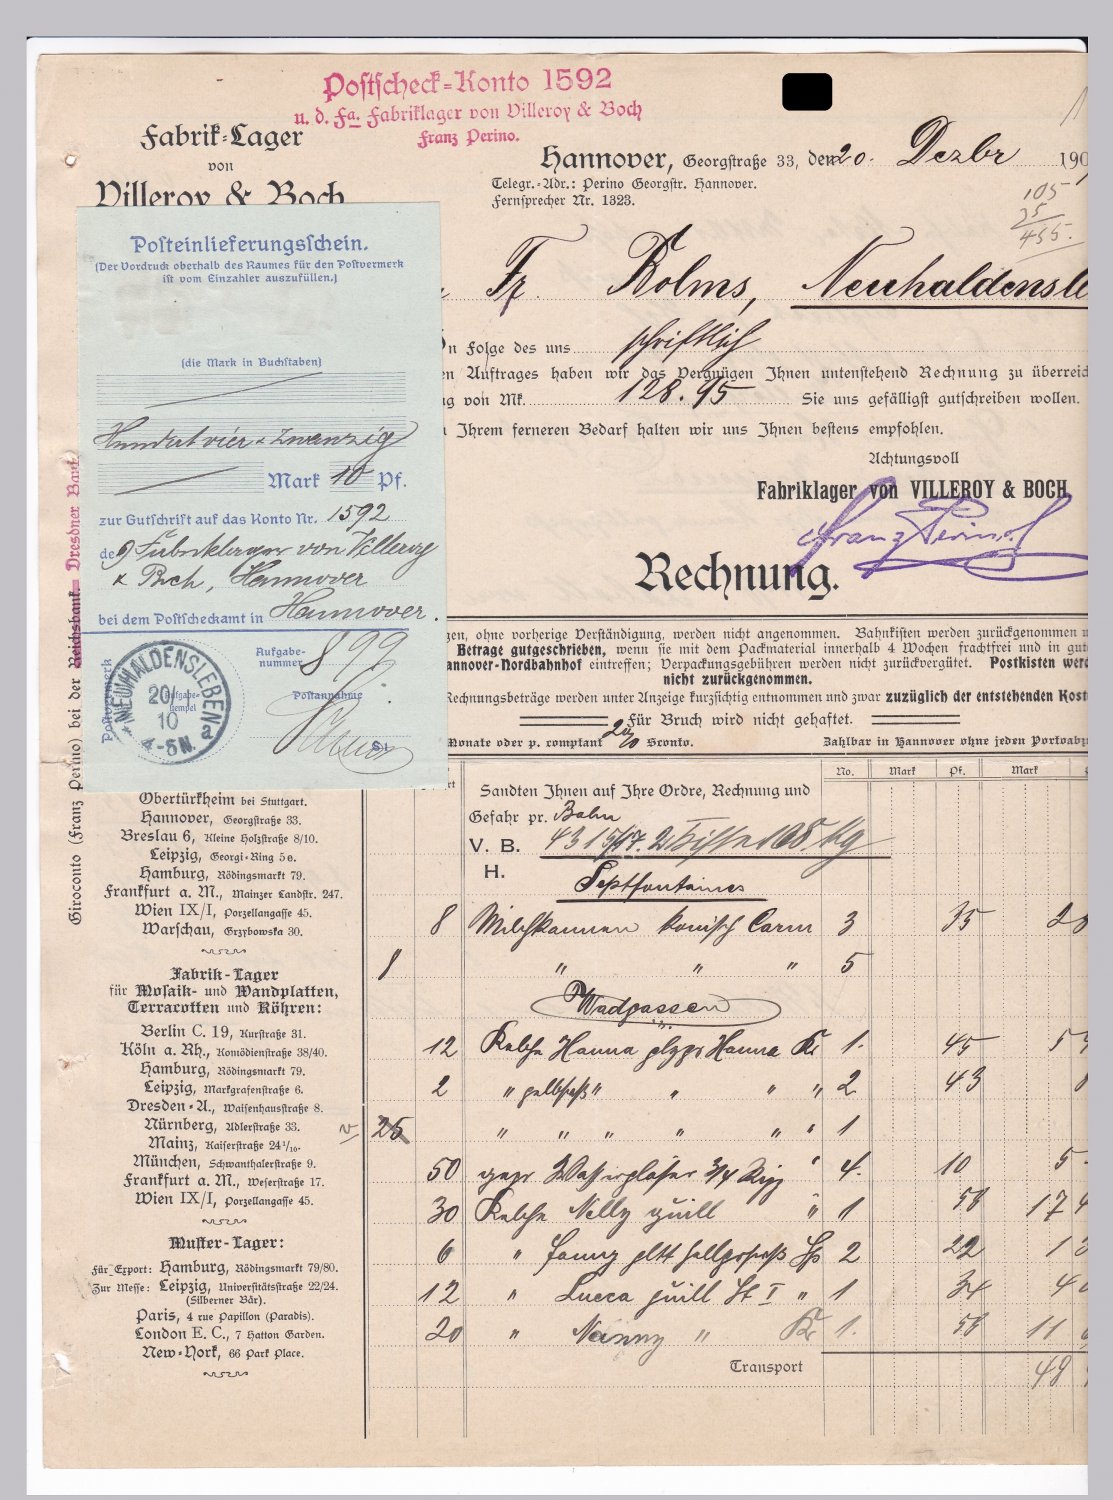 Postscheck-Konto 1592
u. d. Fa. Fabriklager von Villeroy & Boch
Franz Perino.
Fabrik-Lager
von
Villeroy & Boch
Hannover, Georgstraße 33, den 20. Dezbr 190
Telegr.-Adr.: Perino Georgstr. Hannover.
Fernsprecher Nr. 1323.
105
25
455.
Fr. Bolms, Neuhaldensle
In Folge des uns schriftlich
en Auftrages haben wir das Vergnügen Ihnen untenstehend Rechnung zu überreic
g von Mk. 128.95 Sie uns gefälligst gutschreiben wollen.
Ihrem ferneren Bedarf halten wir uns Ihnen bestens empfohlen.
Achtungsvoll
Fabriklager von VILLEROY & BOCH
Franz Perino
Rechnung.
gen, ohne vorherige Verständigung, werden nicht angenommen. Bahnkisten werden zurückgenommen u
Betrage gutgeschrieben, wenn sie mit dem Packmaterial innerhalb 4 Wochen frachtfrei und in gut
annover-Nordbahnhof eintreffen; Verpackungsgebühren werden nicht zurückvergütet. Postkisten werd
nicht zurückgenommen.
Rechnungsbeträge werden unter Anzeige kurzsichtig entnommen und zwar zuzüglich der entstehenden Kost
Für Bruch wird nicht gehaftet.
Monate oder p. comptant % Sconto. Zahlbar in Hannover ohne jeden Portoabz
Posteinlieferungsschein.
(Der Vordruck oberhalb des Raumes für den Postvermerk
ist vom Einzahler auszufüllen.)
(die Mark in Buchstaben)
Hundertvier & Zwanzig
Mark 10 Pf.
zur Gutschrift auf das Konto Nr. 1592
des Fabriklager von Villeroy
& Boch, Hannover
bei dem Postscheckamt in Hannover.
Postvermerk
Aufgabe-
nummer 899
Aufgabe-
stempel
Postannahme
NEUHALDENSLEBEN
20
10
4-5N.
a
Giroconto (Franz Perino) bei der Reichsbank. Dresdner Bank
Obertürkheim bei Stuttgart.
Hannover, Georgstraße 33.
Breslau 6, Kleine Holzstraße 8/10.
Leipzig, Georgi-Ring 5e.
Hamburg, Rödingsmarkt 79.
Frankfurt a. M., Mainzer Landstr. 247.
Wien IX/I, Porzellangasse 45.
Warschau, Grzybowska 30.
Fabrik-Lager
für Mosaik- und Wandplatten,
Terracotten und Röhren:
Berlin C. 19, Kurstraße 31.
Köln a. Rh., Komödienstraße 38/40.
Hamburg, Rödingsmarkt 79.
Leipzig, Markgrafenstraße 6.
Dresden-A., Waisenhausstraße 8.
Nürnberg, Adlerstraße 33.
Mainz, Kaiserstraße 24 1/10.
München, Schwanthalerstraße 9.
Frankfurt a. M., Weserstraße 17.
Wien IX/I, Porzellangasse 45.
Muster-Lager:
Für Export: Hamburg, Rödingsmarkt 79/80.
Zur Messe: Leipzig, Universitätsstraße 22/24.
(Silberner Bär).
Paris, 4 rue Papillon (Paradis).
London E. C., 7 Hatton Garden.
New-York, 66 Park Place.
No. Mark Pf. Mark
Sandten Ihnen auf Ihre Ordre, Rechnung und
Gefahr pr. Bahn
V. B. 2 Kisten 108 Kg
H.
Septfontaines
8 Milchkannen konisch Carm 3 35 2
1 " " " 5
Wadgassen
12 Kelche Hanna Hanna 1. 45 5
2 " " " " 2 43
25 " " " " " " 1
50 Wassergläser 3/4 " 4. 10 5
30 Kelche Nelly guill " 1 58 17
6 " Fanny 2 22 1
12 " Lucca guill St I " 1 34 4
20 " Nanny " 1. 58 11
Transport 48